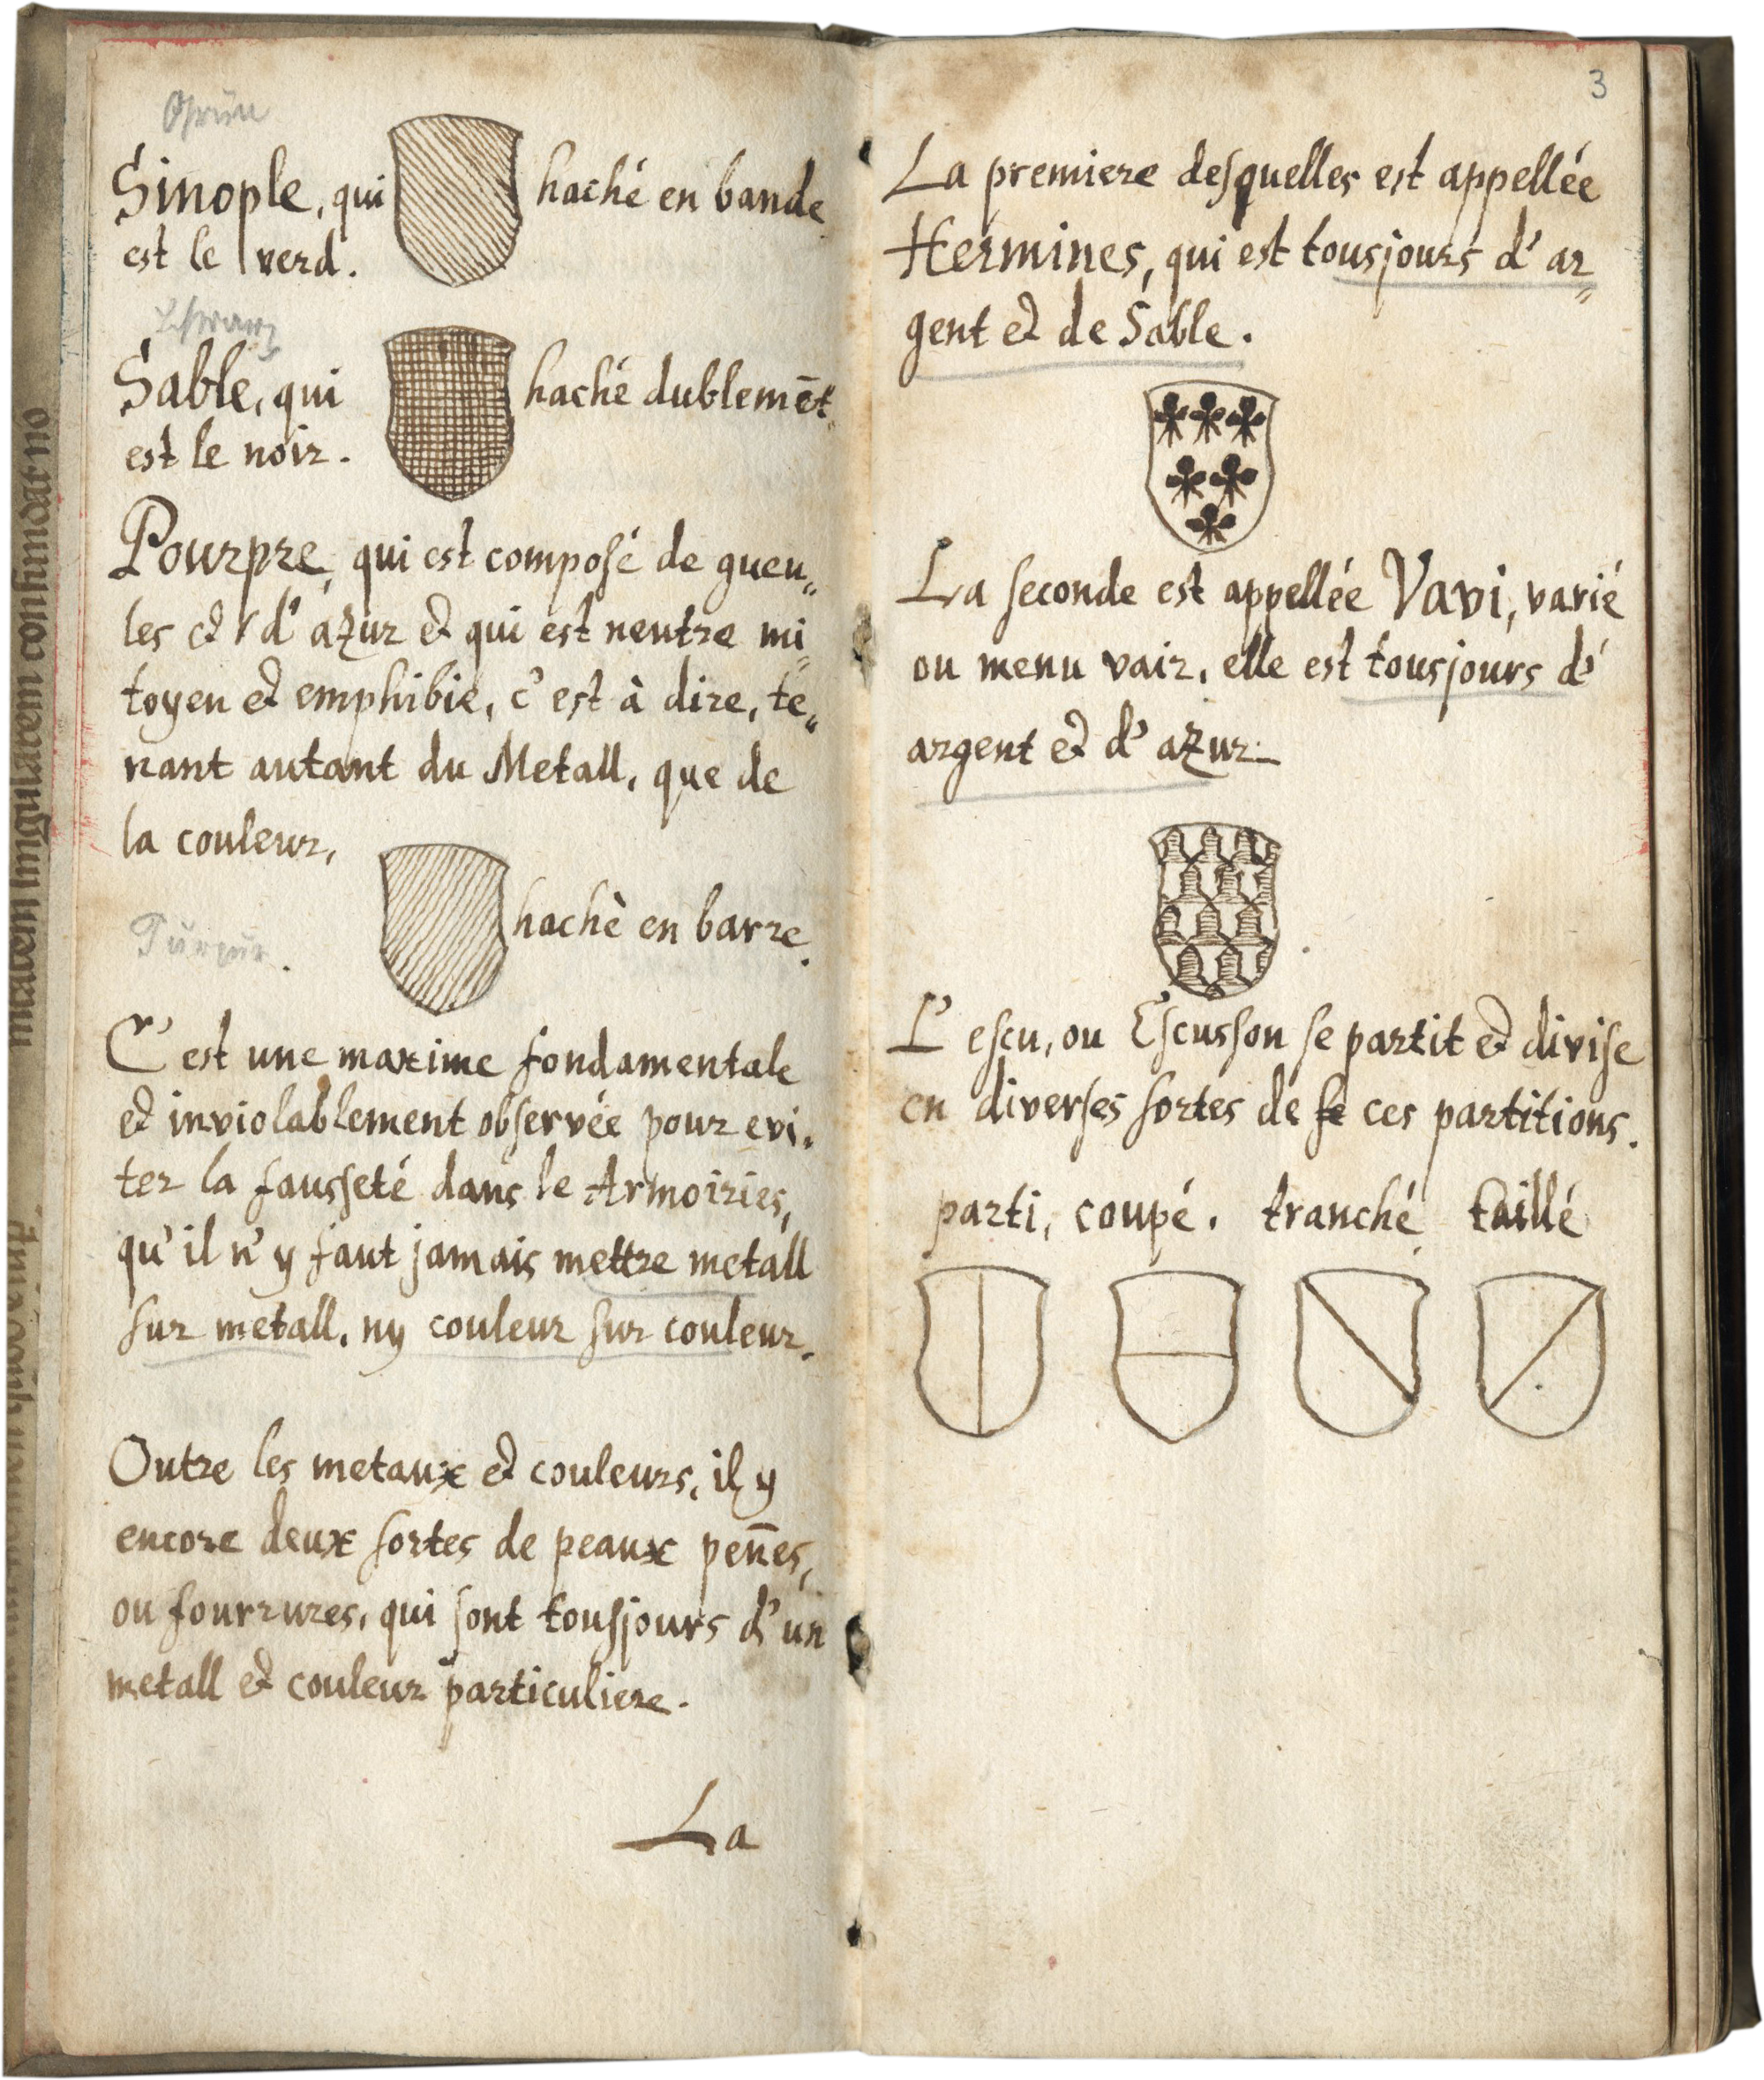 Grün
Sinople, qui
est le verd.
haché en bande
Schwarz
Sable, qui
est le noir.
haché dublemēt.
Pourpre, qui est composé de gueu„
les et d'azur et qui est neutre mi„
toyen et emphibie, c'est à dire, te„
nant autant du Metall, que de
la couleur,
Purpur.
haché en barre.
C'est une maxime fondamentale
et inviolablement observée pour evi„
ter la fausseté dans le Armoiries,
qu'il n'y faut jamais mettre metall
sur metall, ny couleur sur couleur.
Outre les metaux et couleurs, il y
encore deux sortes de peaux pen̄es,
ou fourrures, qui sont tousjours d'un
metall et couleur particuliere.
La
3
La premiere desquelles est appellée
Hermines, qui est tousjours d'ar„
gent et de Sable.
La seconde est appellée Vavi, varié
ou menu vair, elle est tousjours d'
argent et d'azur.
L'escu, ou Escusson se partit et divise
en diverses sortes de se ces partitions.
parti, coupé. tranché taillé